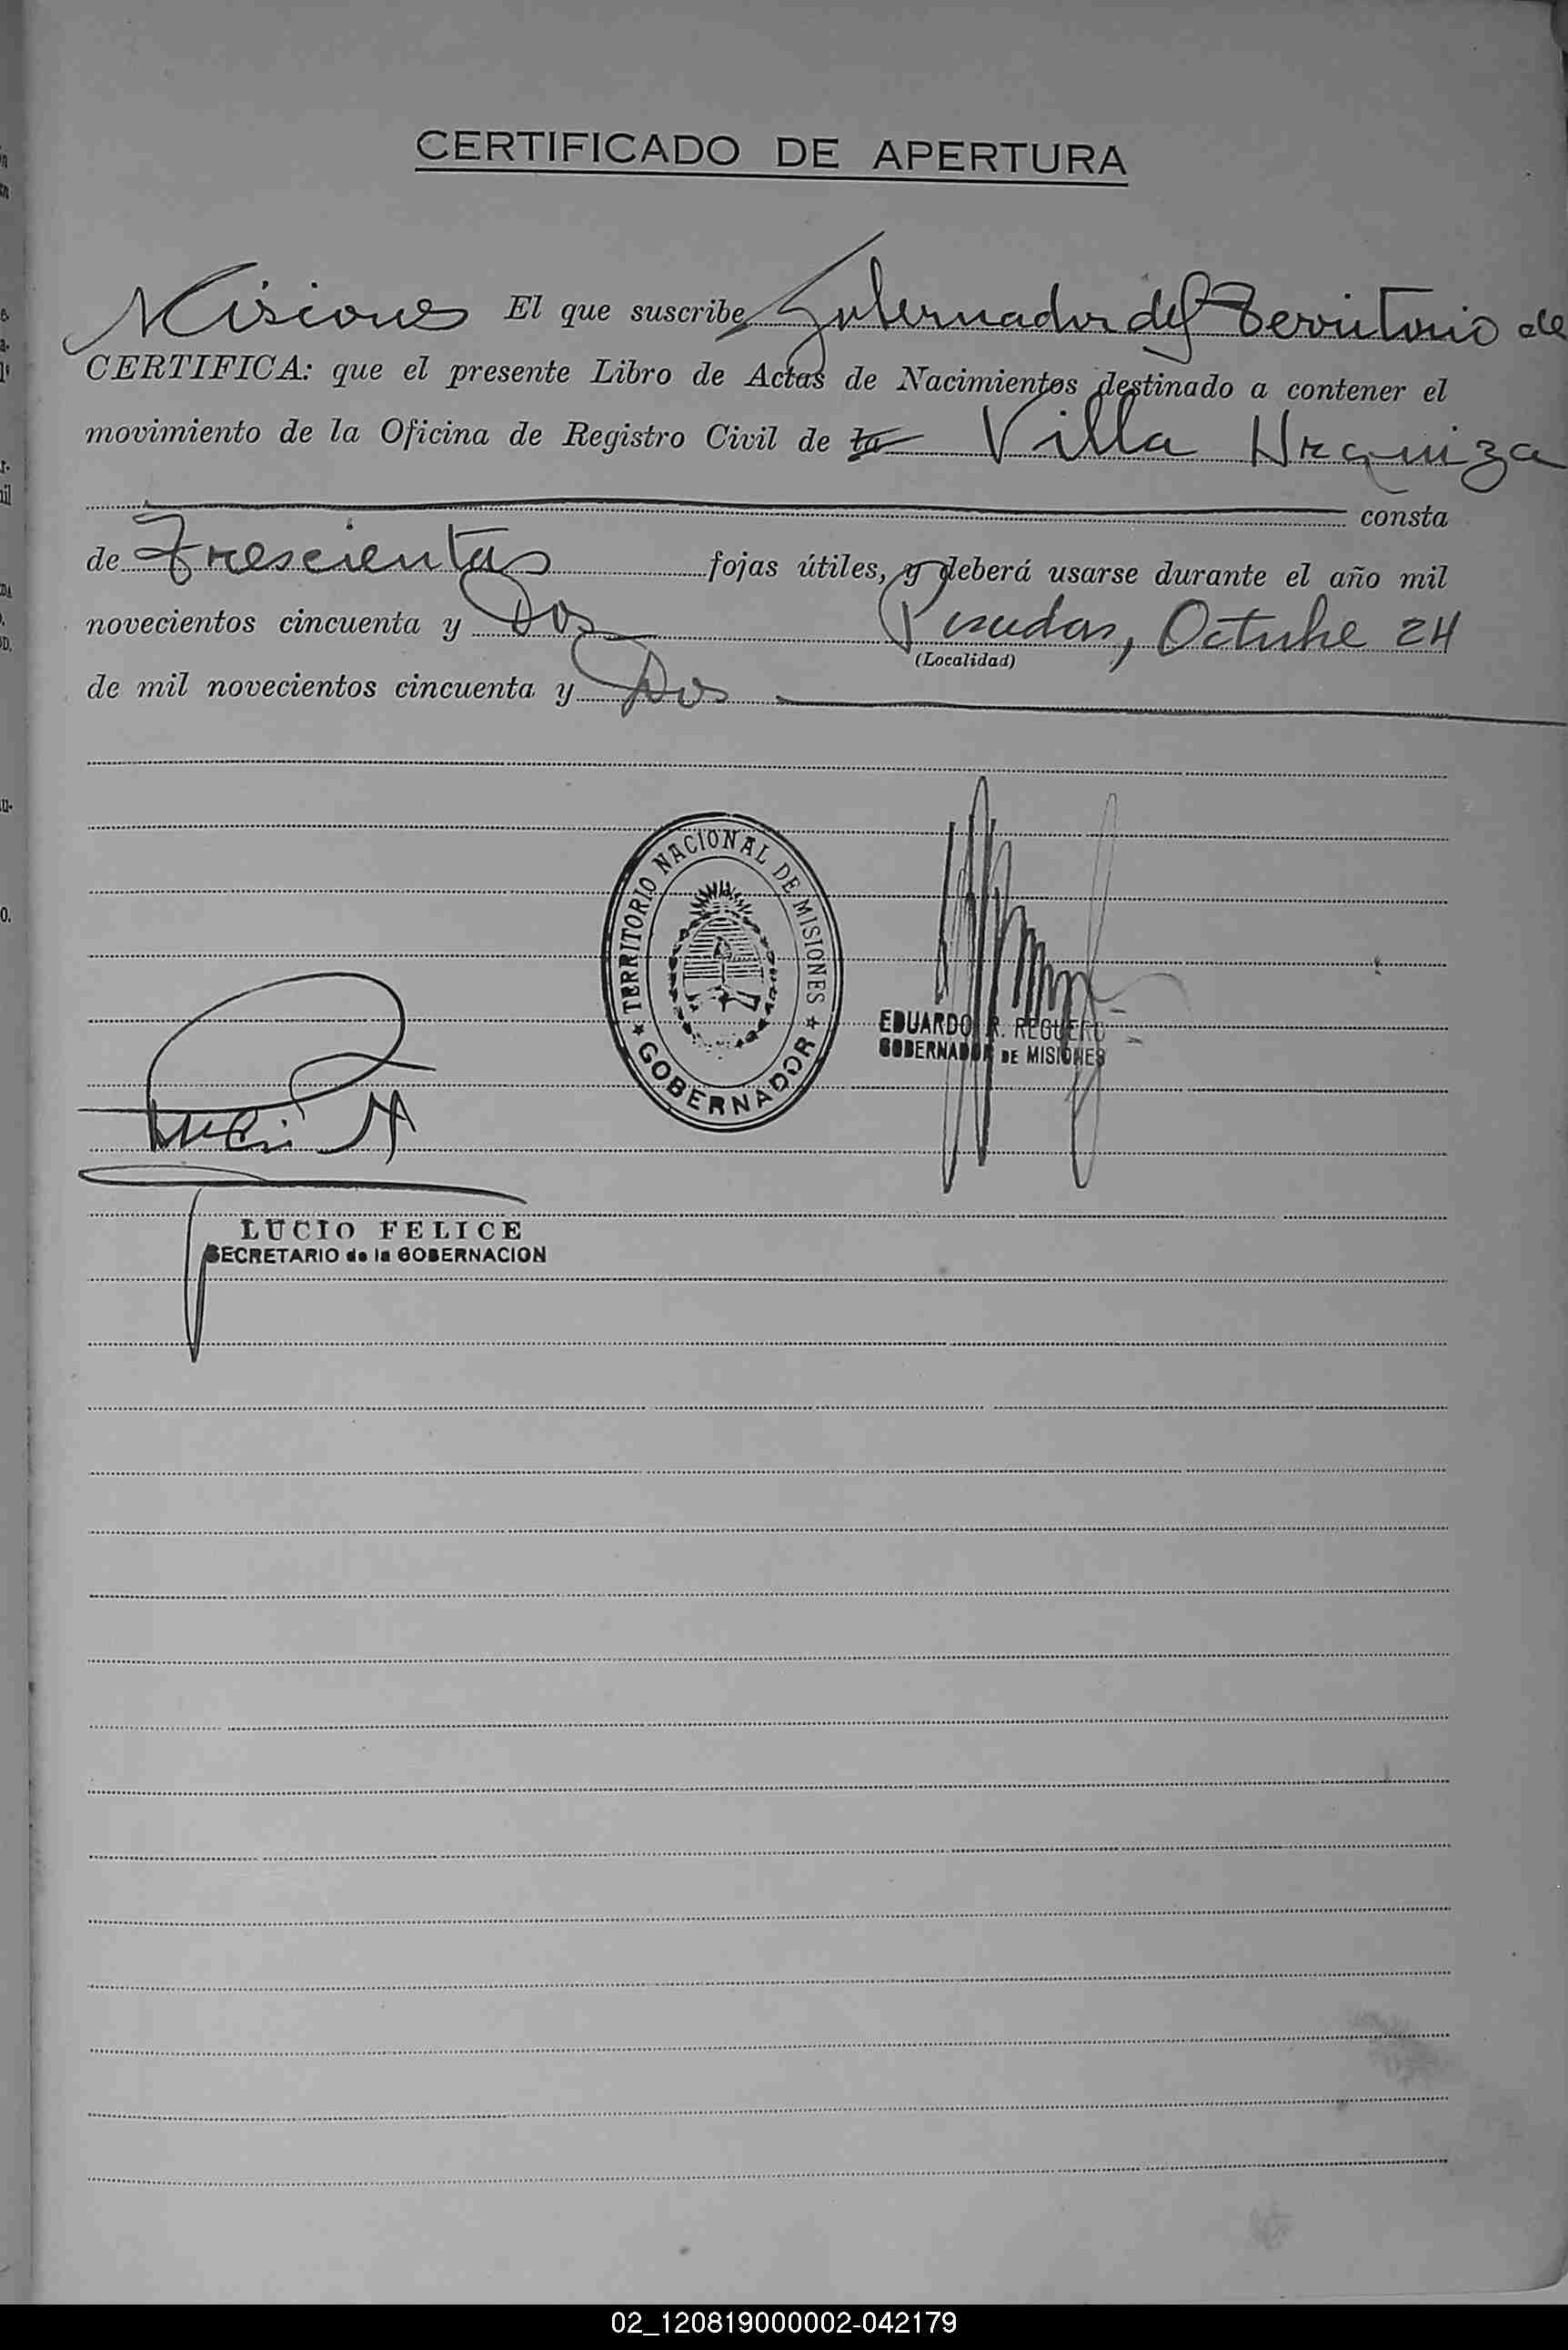 CERTIFICADO DE APERTURA
Misiones El que suscribe Gobernador del Territorio de
CERTIFICA: que el presente Libro de Actas de Nacimientos destinado a contener el
movimiento de la Oficina de Registro Civil de la Villa Urquiza
consta
de Trescientas fojas útiles, y deberá usarse durante el año mil
novecientos cincuenta y Dos Posadas, Octubre 24
(Localidad)
de mil novecientos cincuenta y Dos
TERRITORIO NACIONAL DE MISIONES
GOBERNADOR
EDUARDO R. REGUERO
GOBERNADOR DE MISIONES
LUCIO FELICE
SECRETARIO de la GOBERNACION
02_120819000002-042179